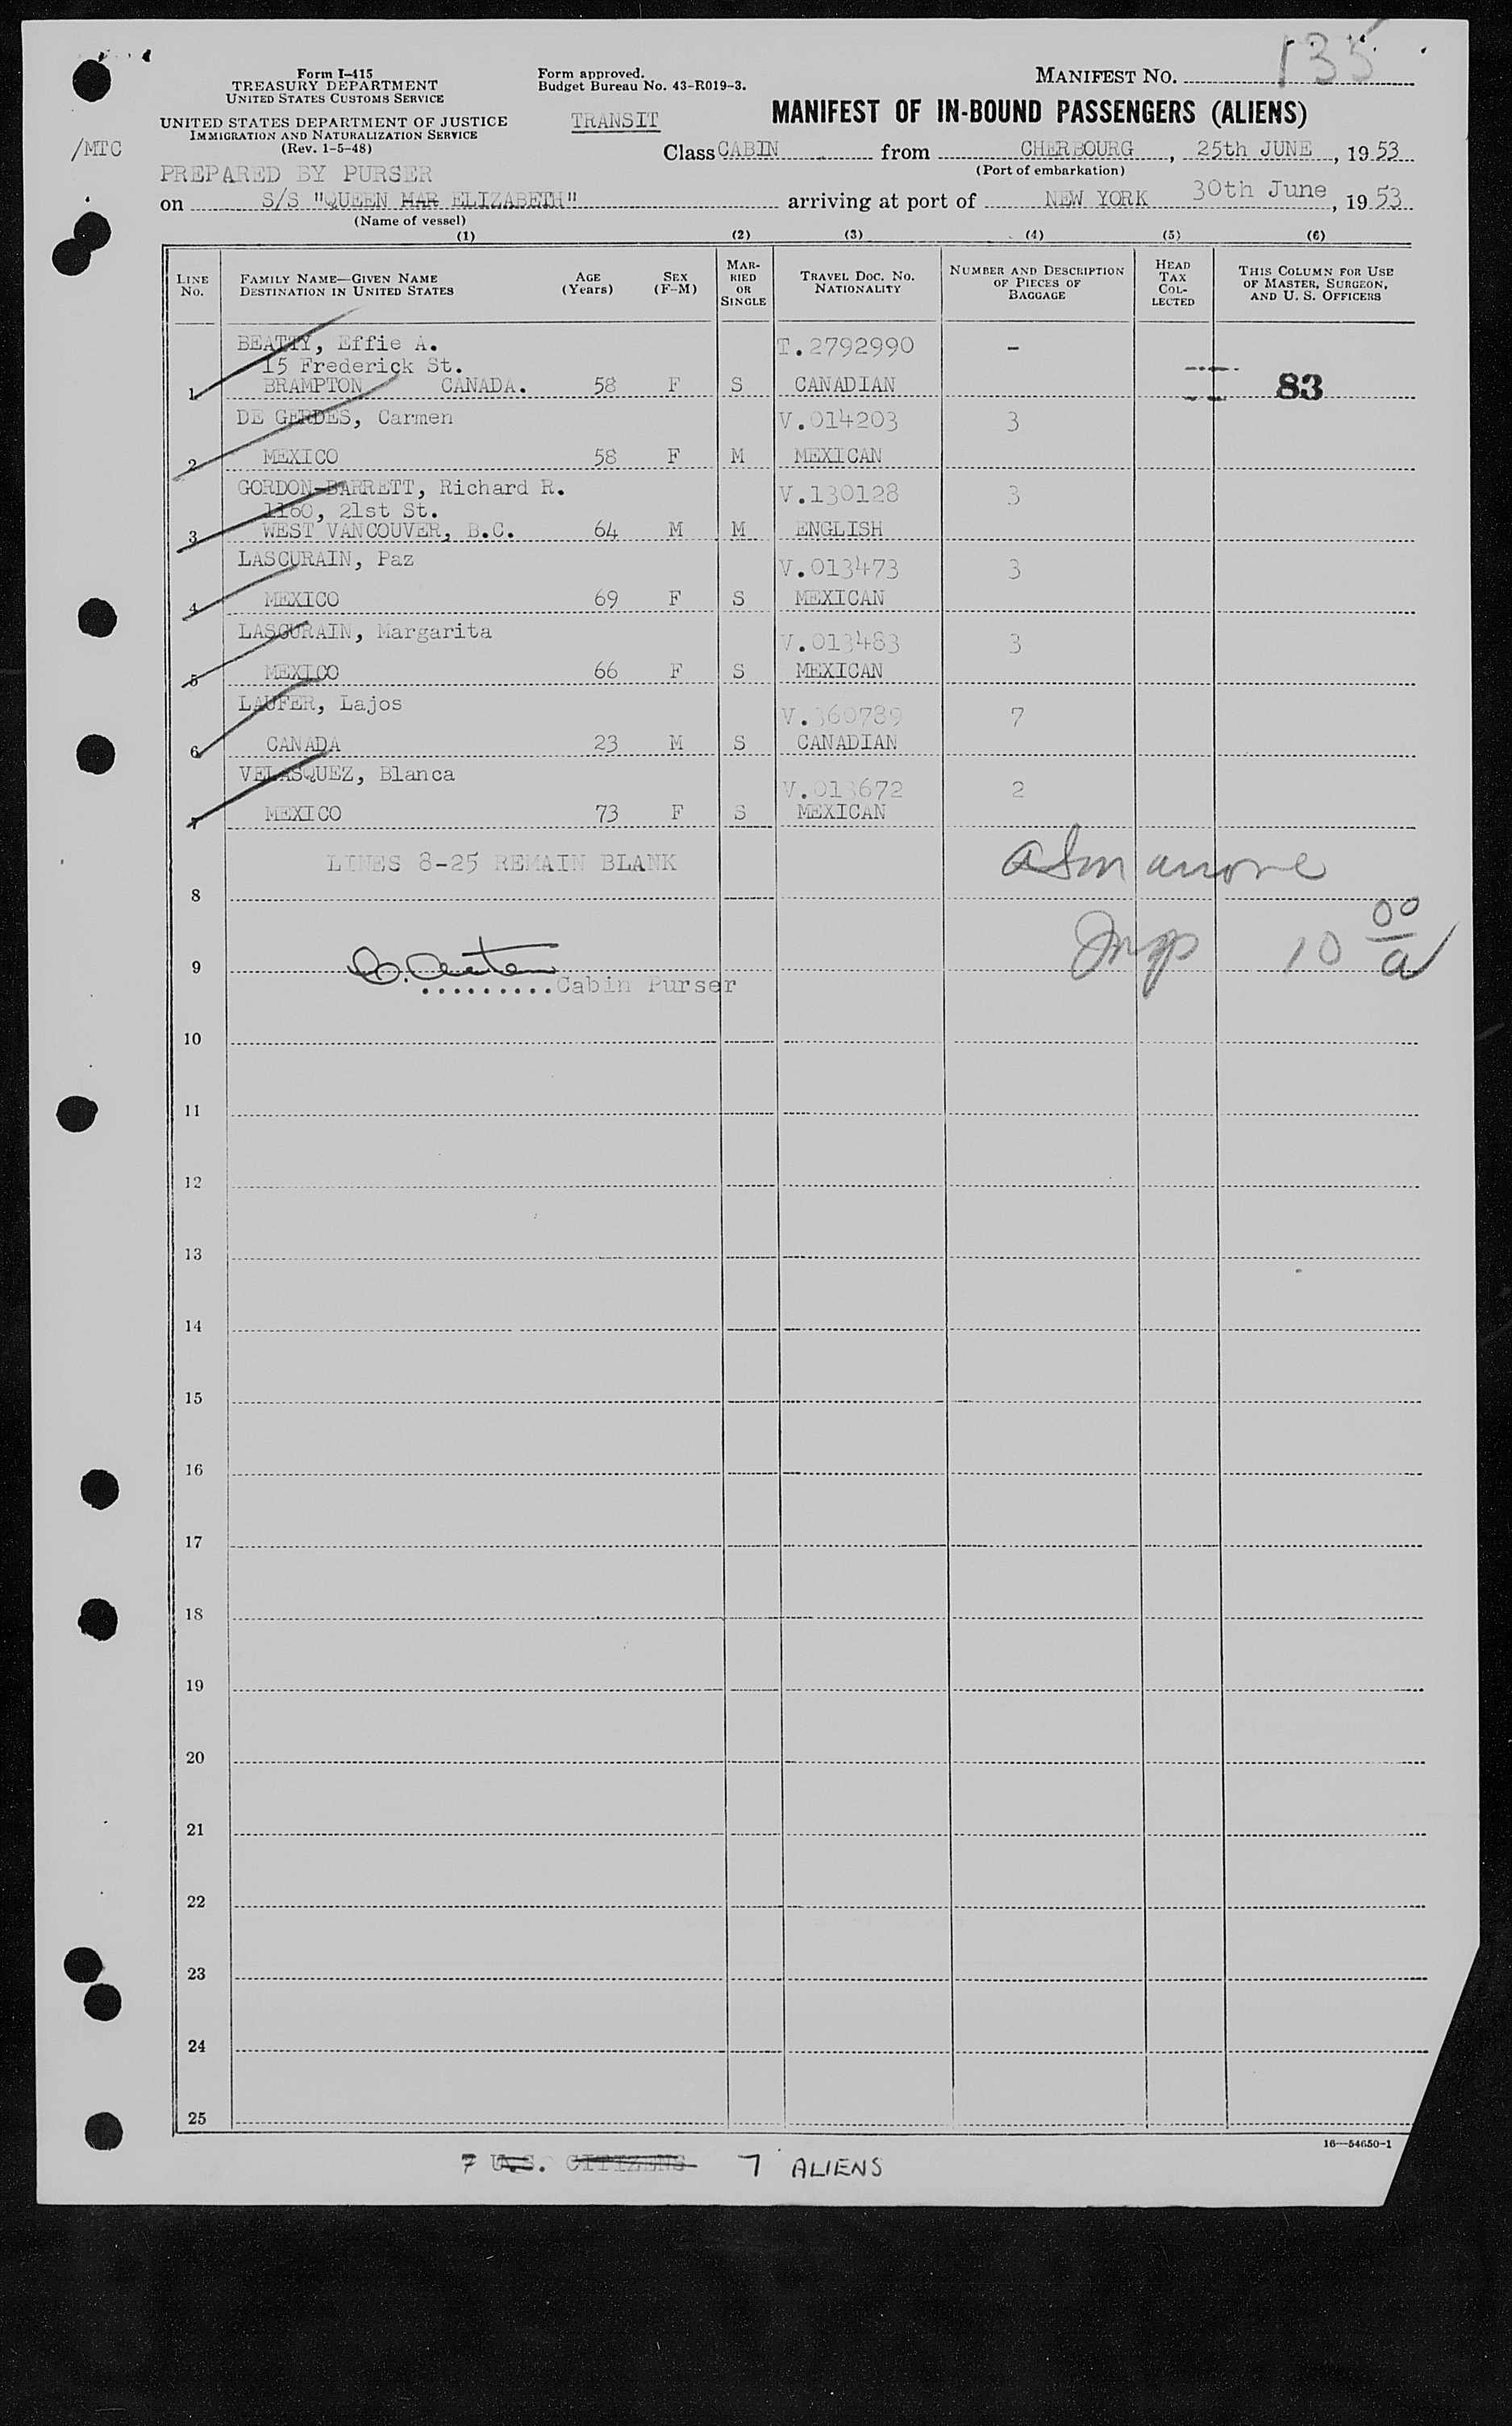 135
Form I-415
TREASURY DEPARTMENT
UNITED STATES CUSTOMS SERVICE
Form approved.
Budget Bureau No. 43-R019-3.
MANIFEST NO.
UNITED STATES DEPARTMENT OF JUSTICE
IMMIGRATION AND NATURALIZATION SERVICE
(Rev. 1-5-48)
TRANSIT
MANIFEST OF IN-BOUND PASSENGERS (ALIENS)
/MTC
Class CABIN from CHERBOURG, 25th JUNE, 1953
(Port of embarkation)
PREPARED BY PURSER
on S/S "QUEEN MAR ELIZABETH" arriving at port of NEW YORK 30th June, 1953
(Name of vessel)
(1) (2) (3) (4) (5) (6)
LINE NO.
FAMILY NAME—GIVEN NAME
DESTINATION IN UNITED STATES
AGE (Years)
SEX (F-M)
MARRIED OR SINGLE
TRAVEL DOC. NO. NATIONALITY
NUMBER AND DESCRIPTION OF PIECES OF BAGGAGE
HEAD TAX COLLECTED
THIS COLUMN FOR USE OF MASTER, SURGEON, AND U. S. OFFICERS
BEATTY, Effie A. T.2792990 -
15 Frederick St.
1 BRAMPTON CANADA. 58 F S CANADIAN 83
DE GERDES, Carmen V.014203 3
2 MEXICO 58 F M MEXICAN
GORDON-BARRETT, Richard R. V.130128 3
1160, 21st St.
3 WEST VANCOUVER, B.C. 64 M M ENGLISH
LASCURAIN, Paz V.013473 3
4 MEXICO 69 F S MEXICAN
LASCURAIN, Margarita V.013483 3
5 MEXICO 66 F S MEXICAN
LAUFER, Lajos V.360789 7
6 CANADA 23 M S CANADIAN
VELASQUEZ, Blanca V.013672 2
7 MEXICO 73 F S MEXICAN
LINES 8-25 REMAIN BLANK
8
10 00/a
9
.........Cabin Purser
10
11
12
13
14
15
16
17
18
19
20
21
22
23
24
25
16—54650-1
7 U.S. CITIZENS 7 ALIENS